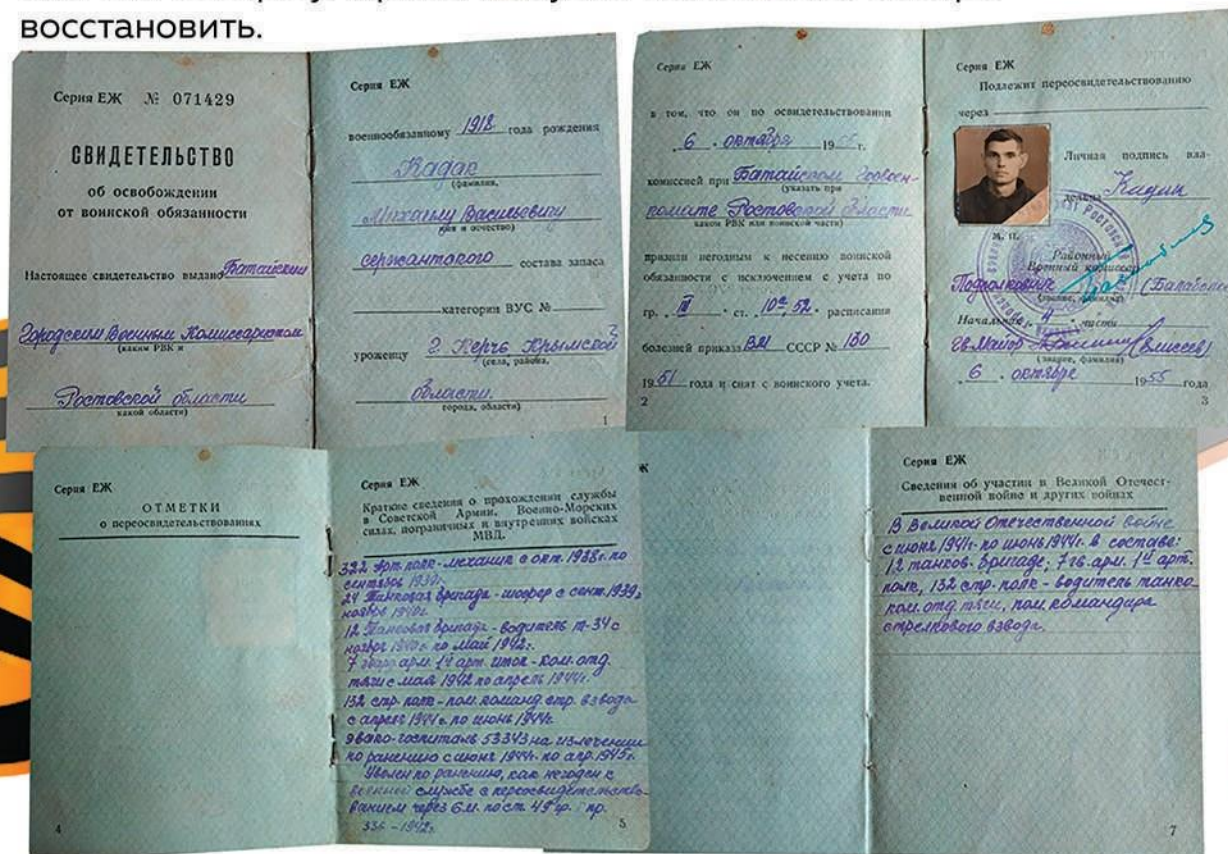 восстановить.
Серия ЕЖ № 071429
СВИДЕТЕЛЬСТВО
об освобождении
от воинской обязанности
Настоящее свидетельство выдано Батайским
Городским Военным Комиссариатом
(каким РВК и
Ростовской области
какой области)
Серия ЕЖ
военнообязанному 1918 года рождения
(фамилия,
Михаилу Васильевичу
(имя и отчество)
сержантского состава запаса
категории ВУС №
уроженцу г. Керчь Крымской
(села, района,
области.
города, области)
1
Серия ЕЖ
в том, что он по освидетельствовании
„6 " октября 19 г.
комиссией при Батайском Горвоен-
(указать при
комате Ростовской области
каком РВК или воинской части)
признан негодным к несению воинской
обязанности с исключением с учета по
гр. II ст. 10а, 52 расписания
болезней приказа ВМ СССР № 150
1951 года и снят с воинского учета.
2
Серия ЕЖ
Подлежит переосвидетельствованию
через
Личная подпись вла-
дельца
М. П.
Районный
Военный комиссар
Подполковник
(звание, фамилия)
Начальник 4 части
Гв. Майор (Елисеев)
(звание, фамилия)
„6 " октября 1955 года
3
Серия ЕЖ
ОТМЕТКИ
о переосвидетельствованиях
4
Серия ЕЖ
Краткие сведения о прохождении службы
в Советской Армии, Военно-Морских
силах, пограничных и внутренних войсках
МВД.
322 арт. полк - механик с окт. 1938г. по
сентябрь 1939г.
24 Танковая бригада - шофер с сент. 1939г.
ноябрь 1940г.
12 Танковая бригада - водитель т-34 с
ноября 1940г. по май 1942г.
7 гвард. арм. 1й арт. - ком. отд.
тяги с мая 1942 по апрель 1944г.
132 стр. полк - пом. команд. стр. взвода
с апреля 1944г. по июнь 1944г.
Эвако-госпиталь 5334З на излечении
по ранению с июня 1944г. по апр. 1945г.
Уволен по ранению, как негоден к
военной службе с переосвидетельство-
ванием через 6 м. по ст. 49 гр. I пр.
336 - 1942г.
5
Серия ЕЖ
Сведения об участии в Великой Отечест-
венной войне и других войнах
В Великой Отечественной войне
с июня 1941г. по июнь 1944г. в составе:
12 танков. бригаде; 7 гв. арм. 1й арт.
полк, 132 стр. полк - водитель танка
ком. отд. тяги, пом. командира
стрелкового взвода.
7